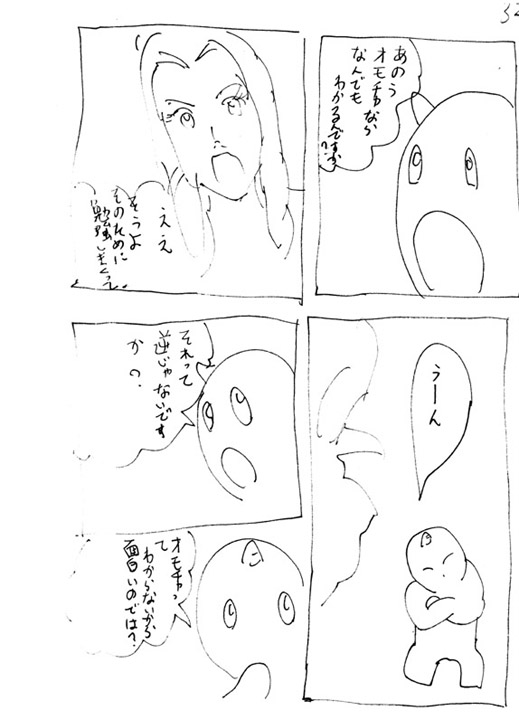 あのう
オモチャなら
なんでも
わかるんですか?
ええ
そうよ
そのために
勉強しまくって
うーん
それって
逆じゃないです
か?
オモチャっ
て
わからないから
面白いのでは?